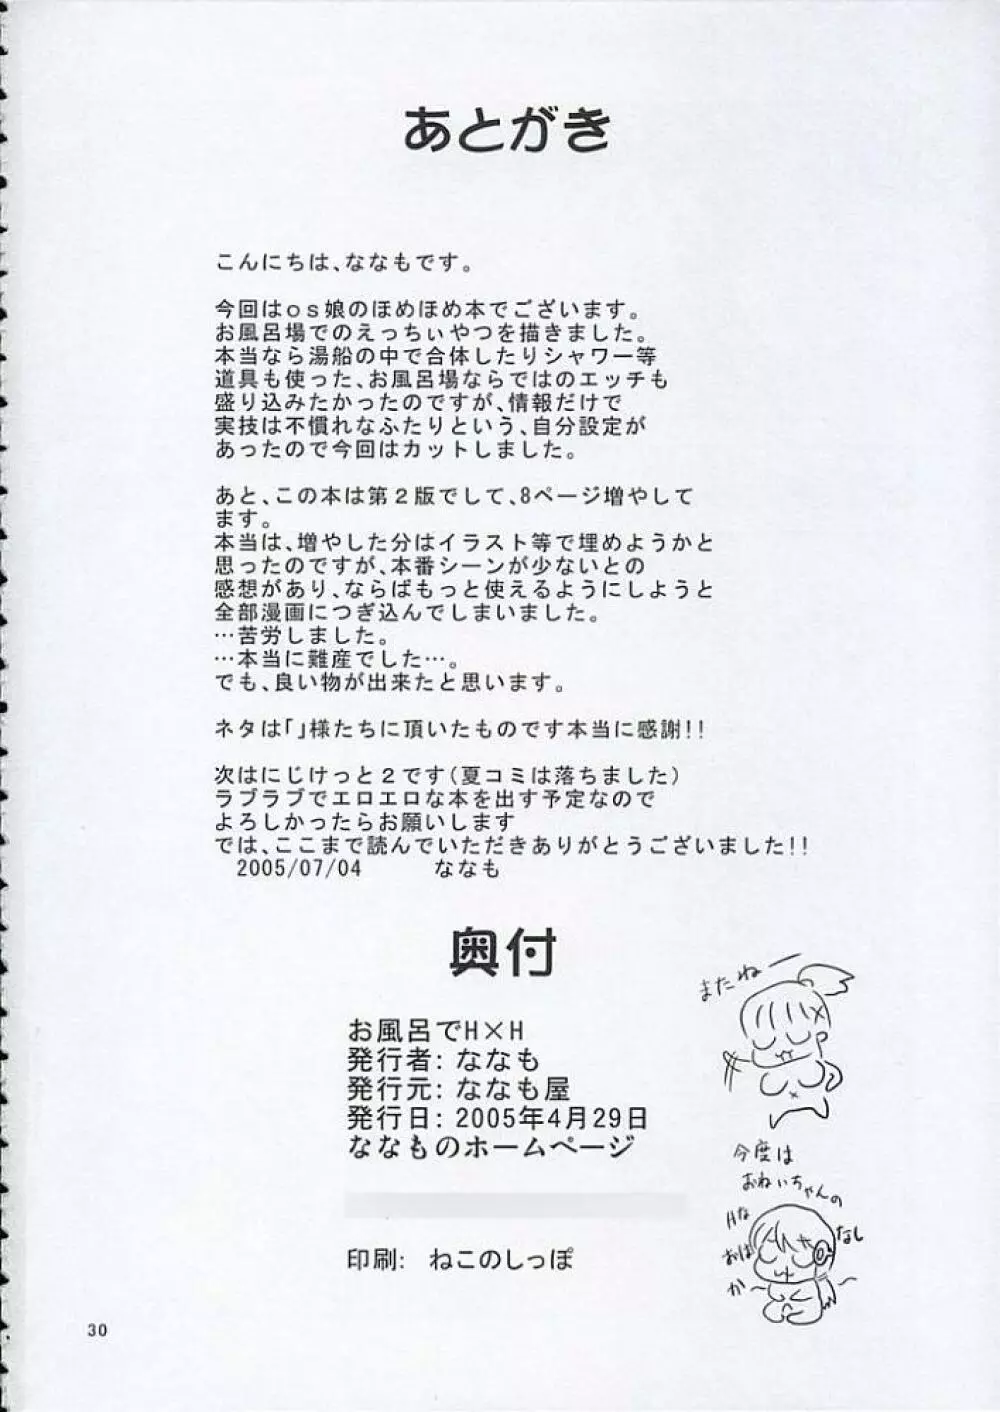 あとがき
こんにちは、ななもです。
今回はos娘のほめほめ本でございます。
お風呂場でのえっちぃやつを描きました。
本当なら湯船の中で合体したりシャワー等
道具も使った、お風呂場ならではのエッチも
盛り込みたかったのですが、情報だけで
実技は不慣れなふたりという、自分設定が
あったので今回はカットしました。
あと、この本は第2版でして、8ページ増やして
ます。
本当は、増やした分はイラスト等で埋めようかと
思ったのですが、本番シーンが少ないとの
感想があり、ならばもっと使えるようにしようと
全部漫画につぎ込んでしまいました。
…苦労しました。
…本当に難産でした…。
でも、良い物が出来たと思います。
ネタは「」様たちに頂いたものです本当に感謝!!
次はにじけっと2です(夏コミは落ちました)
ラブラブでエロエロな本を出す予定なので
よろしかったらお願いします
では、ここまで読んでいただきありがとうございました!!
2005/07/04 ななも
奥付
お風呂でH×H
発行者: ななも
発行元: ななも屋
発行日: 2005年4月29日
ななものホームページ
印刷: ねこのしっぽ
またねー
今度は
おねいちゃんの
Hな
おはなし
か〜〜
30